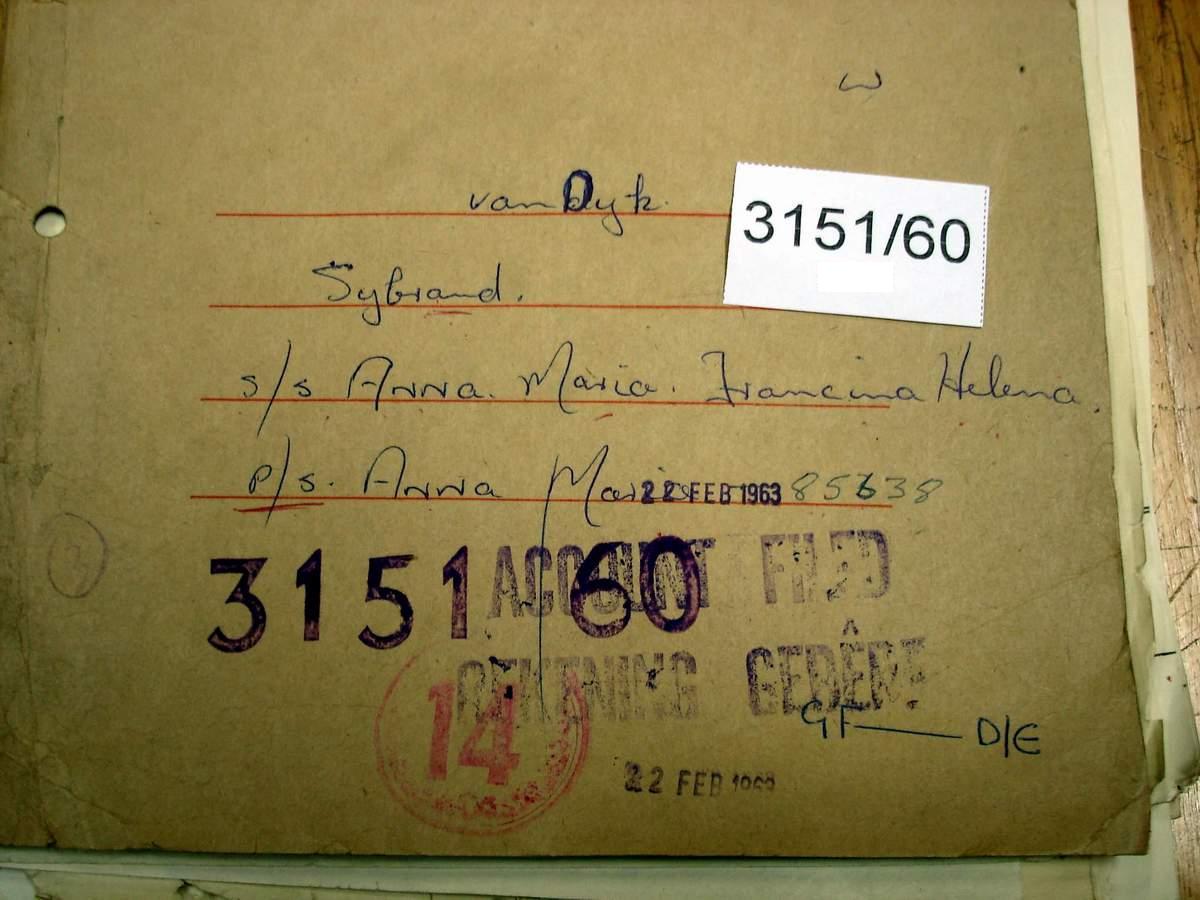 van Dyk.
3151/60
Sybrand.
s/s Anna. Maria. Francina Helena.
p/s. Anna Maria 22 FEB 1963 85638
3151 60 ACCOUNT FILED
REKENING GEBÊRE
14
GF — D/E
22 FEB 1963